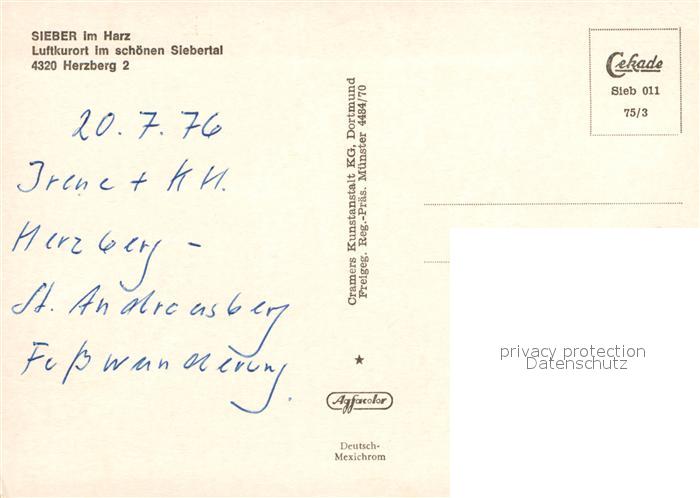 SIEBER im Harz
Luftkurort im schönen Siebertal
4320 Herzberg 2
20.7.76
Irene + KH.
Herzberg –
St. Andreasberg
Fußwanderung.
Cramers Kunstanstalt KG, Dortmund
Freigeg. Reg.-Präs. Münster 4484/70
Agfacolor
Deutsch-
Mexichrom
Cekade
Sieb 011
75/3
privacy protection
Datenschutz